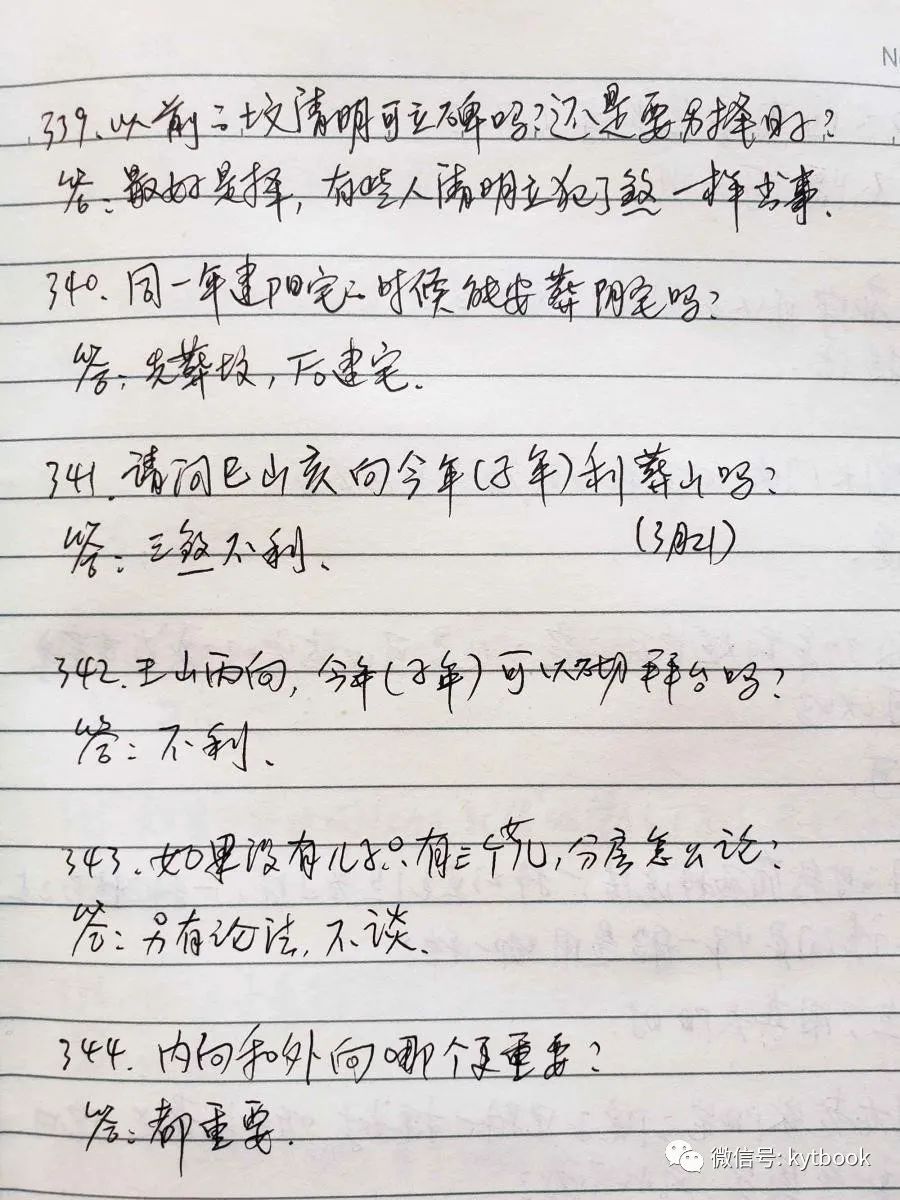 339、以前的坟清明可立碑吗?还是要另择日子?
答:最好是择,有些人清明立犯了煞一样出事.
340、同一年建阳宅的时候能安葬阴宅吗?
答:先葬坟,后建宅.
341、请问巳山亥向今年(子年)利葬山吗?
答:三煞不利、
(3月21)
342、壬山丙向,今年(子年)可以砌拜台吗?
答:不利、
343、如果没有儿子只有三个女儿,分房怎么论?
答:另有论法,不谈、
344、内向和外向哪个更重要?
答:都重要、
微信号: kytbook